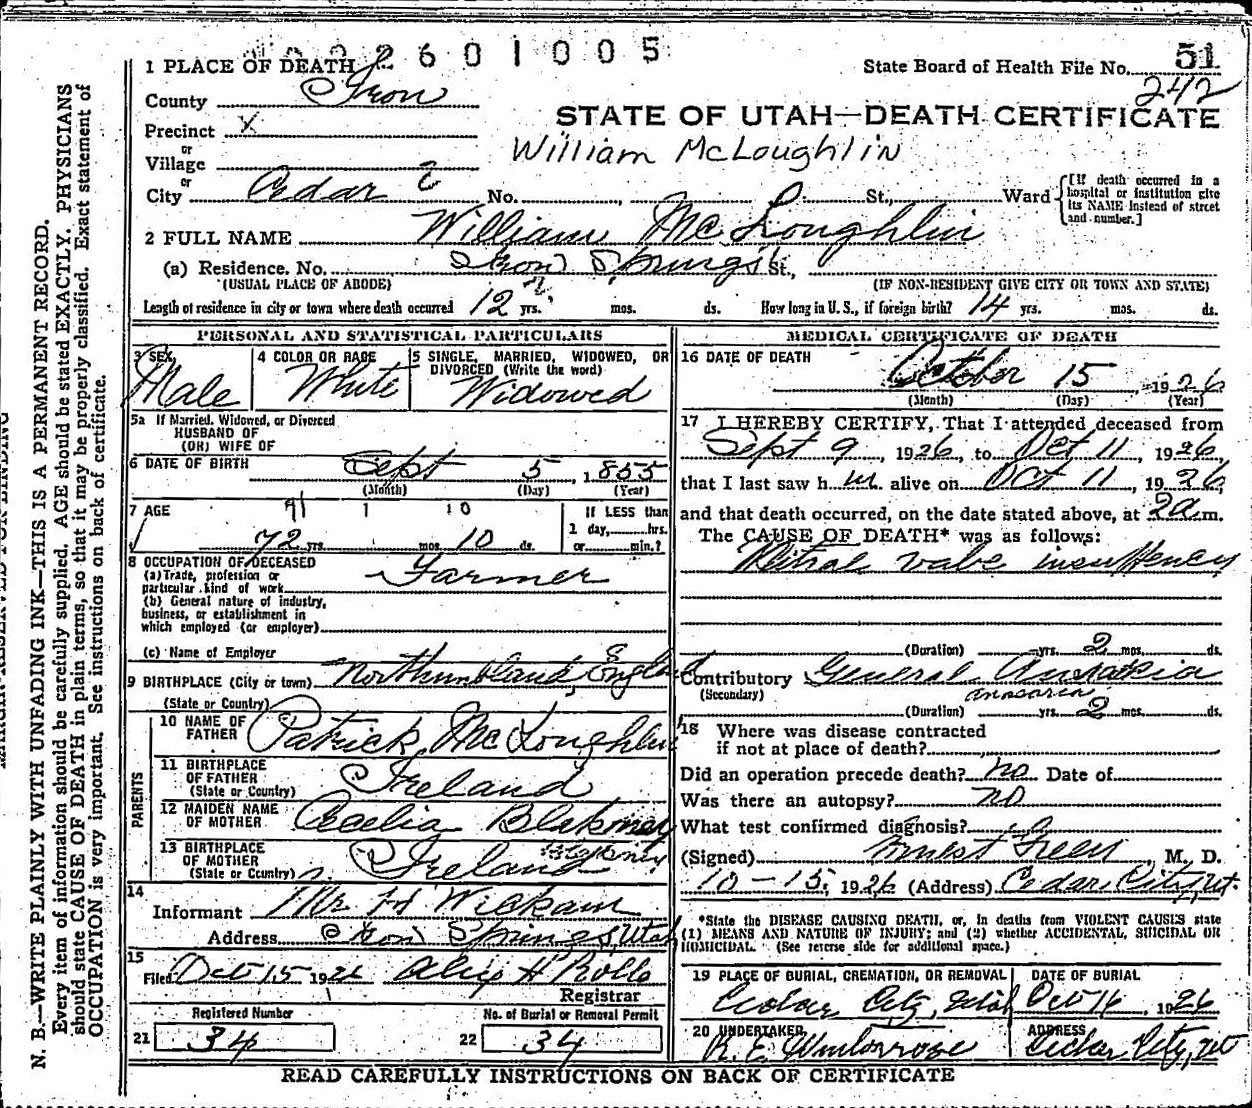 2601005
51
1 PLACE OF DEATH
State Board of Health File No.
242
County Iron
STATE OF UTAH—DEATH CERTIFICATE
Precinct X
William McLoughlin
or
Village
or
City Cedar C No. , St., Ward
[If death occurred in a hospital or institution give its NAME instead of street and number.]
2 FULL NAME William McLoughlin
(a) Residence. No. Iron Springs St.,
(USUAL PLACE OF ABODE) (IF NON-RESIDENT GIVE CITY OR TOWN AND STATE)
Length of residence in city or town where death occurred 12 yrs. mos. ds. How long in U. S., if foreign birth? 14 yrs. mos. ds.
PERSONAL AND STATISTICAL PARTICULARS
3 SEX Male
4 COLOR OR RACE White
5 SINGLE, MARRIED, WIDOWED, OR DIVORCED (Write the word) Widowed
5a If Married, Widowed, or Divorced
HUSBAND OF
(OR) WIFE OF
6 DATE OF BIRTH Sept 5, 1855
(Month) (Day) (Year)
7 AGE 71 1 10
72 yrs. mos. 10 ds.
If LESS than
1 day,.....hrs.
or.....min.?
8 OCCUPATION OF DECEASED
(a) Trade, profession or
particular kind of work Farmer
(b) General nature of industry,
business, or establishment in
which employed (or employer)
(c) Name of Employer
9 BIRTHPLACE (City or town) Northumberland, England
(State or Country)
PARENTS
10 NAME OF FATHER Patrick McLoughlin
11 BIRTHPLACE OF FATHER (State or Country) Ireland
12 MAIDEN NAME OF MOTHER Caelia Blakmey
13 BIRTHPLACE OF MOTHER (State or Country) Ireland
14
Informant Mr H Wickam
Address Iron Springs, Utah
15
Filed Oct 15 1926 Alix H Rollo
Registrar
Registered Number
21 34
No. of Burial or Removal Permit
22 34
MEDICAL CERTIFICATE OF DEATH
16 DATE OF DEATH
October 15 1926
(Month) (Day) (Year)
17 I HEREBY CERTIFY, That I attended deceased from
Sept 9, 1926, to Oct 11, 1926,
that I last saw h im alive on Oct 11, 1926,
and that death occurred, on the date stated above, at 2a m.
The CAUSE OF DEATH* was as follows:
Mitral valve insufficiency
(Duration) yrs. 2 mos. ds.
Contributory General Anasarca
(Secondary) anasarca
(Duration) yrs. 2 mos. ds.
18 Where was disease contracted
if not at place of death?
Did an operation precede death? no Date of
Was there an autopsy? no
What test confirmed diagnosis?
(Signed) Ernest Green, M. D.
10-15, 1926 (Address) Cedar City, Ut.
*State the DISEASE CAUSING DEATH, or, in deaths from VIOLENT CAUSES state
(1) MEANS AND NATURE OF INJURY; and (2) whether ACCIDENTAL, SUICIDAL OR
HOMICIDAL. (See reverse side for additional space.)
19 PLACE OF BURIAL, CREMATION, OR REMOVAL
Cedar City, Utah
DATE OF BURIAL
Oct 16, 1926
20 UNDERTAKER
R. E.
ADDRESS
Cedar City, Ut
READ CAREFULLY INSTRUCTIONS ON BACK OF CERTIFICATE
N. B.—WRITE PLAINLY WITH UNFADING INK—THIS IS A PERMANENT RECORD.
Every item of information should be carefully supplied. AGE should be stated EXACTLY. PHYSICIANS
should state CAUSE OF DEATH in plain terms, so that it may be properly classified. Exact statement of
OCCUPATION is very important. See instructions on back of certificate.